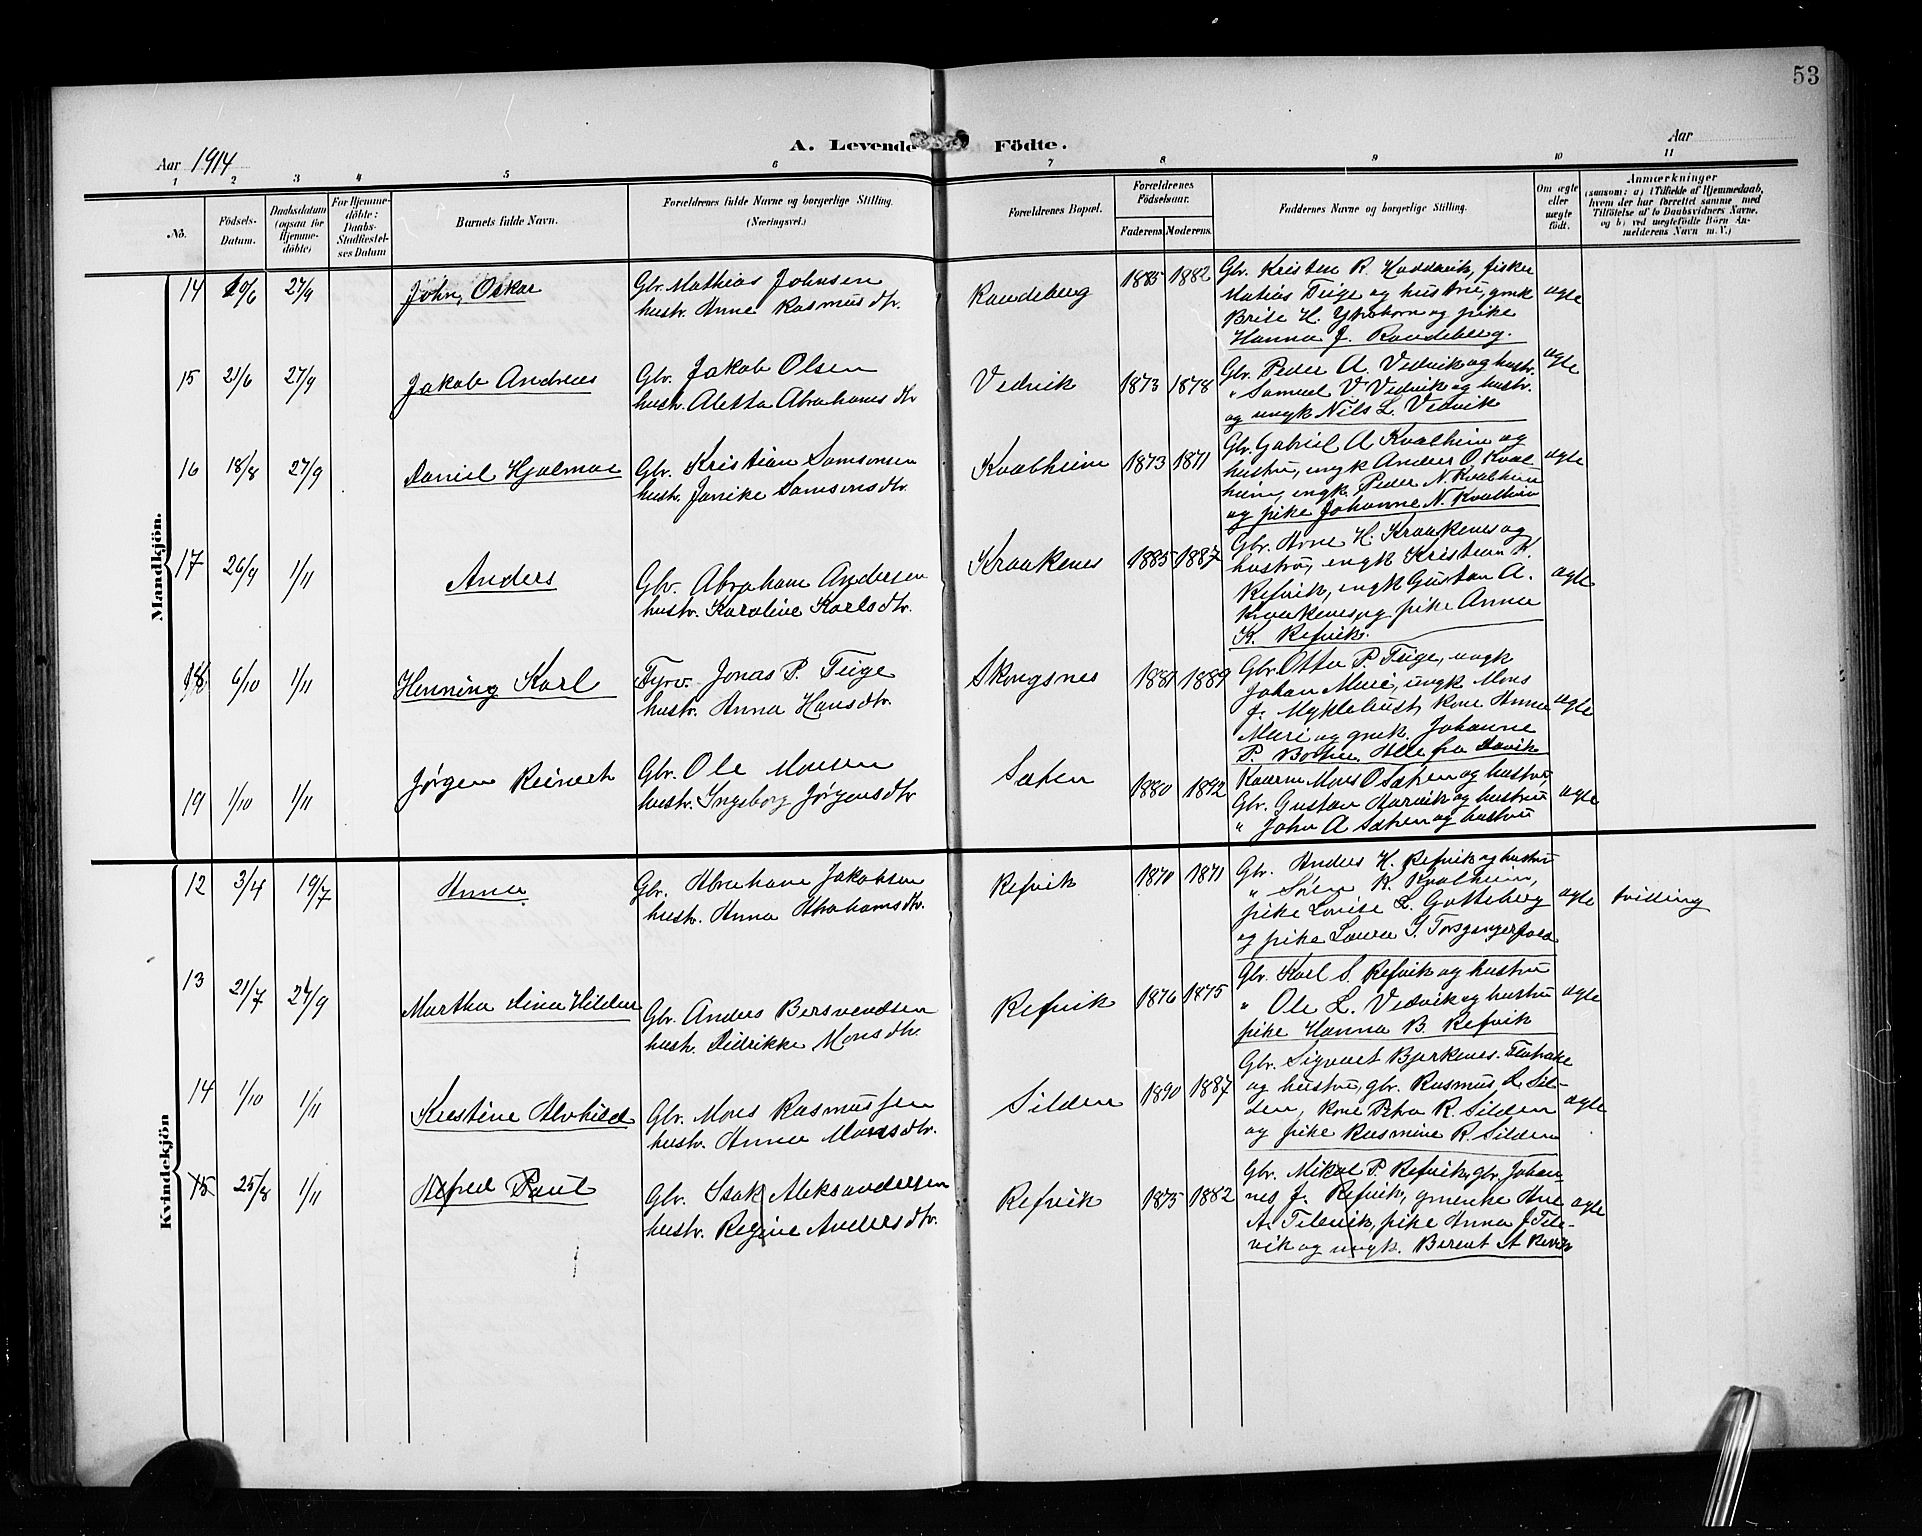 53
A. Levende Födte.
Aar 1914
Aar
1 2 3 4 5 6 7 8 9 10 11
No.
Födsels-Datum.
Daabsdatum (ogsaa for Hjemmedöbte)
For Hjemmedöbte: Daabs-Stadfæstelses Datum
Barnets fulde Navn.
Forældrenes fulde Navne og borgerlige Stilling. (Næringsvei.)
Forældrenes Bopæl.
Forældrenes Födselsaar.
Faderens. Moderens.
Faddernes Navne og borgerlige Stilling.
Om ægte eller uægte födt.
Anmærkninger
(saasom: a) i Tilfælde af Hjemmedaab,
hvem der har forrettet samme, med
Tilföielse af to Daabsvidners Navne,
og b) ved uægtefödte Börn An-
melderens Navn m. V.)
Mandkjön.
14 20/6 27/9 John, Oskar
Gbr. Mathias Johnsen
hustr. Anne Rasmusdtr.
Raudeberg 1885 1882
Gbr. Kristen R. Hoddevik, fisker
Matias Teige og hustru, gmk
H. Ytrehorn og pike
Hanna J. Raudeberg.
ægte
15 21/6 27/9 Jakob Andreas
Gbr. Jakob Olsen
hustr. Aletta Abrahamsdtr
Vedvik 1873 1878
Gbr. Peder A. Vedvik og hustr.
" Samuel V Vedvik og hustr.
og ungk Nils L. Vedvik
ægte
16 18/8 27/9 Daniel Hjalmar
Gbr. Kristian Samsonsen
hustr. Janike Samsonsdtr.
Kvalheim 1873 1871
Gbr. Gabriel A Kvalheim og
hustru, ungk Anders O Kval-
heim, ungk. Peder N. Kvalheim
og pike Johanne N. Kvalheim
ægte
17 26/9 1/11 Anders
Gbr. Abraham Andersen
hustr. Karoline Karlsdtr.
Kraakenes 1885 1887
Gbr. Arne H. Kraakenes og
hustru, ungk Kristian K.
Refvik, ungk Gustav A.
Kraakenes og pike Anna
K. Refvik.
ægte
18 6/10 1/11 Henning Karl
Fyrv. Jonas P. Teige
hustr. Anna Hansdtr.
Skongsnes 1889
Gbr. Otto P. Teige, ungk
Johan Muri, ungk Mons
J. Myklebust, kone Anna
Muri og gmk. Johanne
P. Alle fra Davik
ægte
19 1/10 1/11 Jørgen Reinert
Gbr. Ole Monsen
hustr. Ingeborg Jørgensdtr
Sæten 1880 1892
Mons O Sæten og hustru
Gbr. Gustav Harvik og hustru
" John A Sæten og hustru
ægte
Kvindekjön
12 3/4 19/7 Anna
Gbr. Abraham Jakobsen
hustr. Anna Abrahamsdtr.
Refvik 1870 1871
Gbr. Anders H. Refvik og hustru
" Søren K. Kvalheim,
pike Lovise L. Gotteberg
og pike Laura J. Torsgangerfoed
ægte tvilling
13 21/7 27/9 Martha Dina Hildur
Gbr. Anders Bersvendsen
hustr. Didrikke Monsdtr.
Refvik 1876 1875
Gbr. Karl S. Refvik og hustru
" Ole L. Vedvik og hustru
pike Hanna B. Refvik
ægte
14 1/10 1/11 Kristine Alvhild
Gbr. Mons Rasmussen
hustr. Anna Monsdtr.
Silden 1890 1887
Gbr. Sigvart Bjerkenes. Flatrake
og hustru, gbr. Rasmus R. Sil-
den, kone Petra R. Silden
og pike Rasmine R. Silden
ægte
15 25/8 1/11 Alfred Paul
Gbr. Isak Aleksandersen
hustr. Regine Andersdtr.
Refvik 1875 1882
Gbr. Mikal P. Refvik, gbr. Johan-
nes J. Refvik, gmenke Ane
A. Tilevik, pike Anna J Tile-
vik og ungk. Berent A Revik
ægte